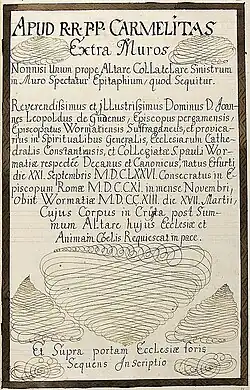 APUD RR·PP· CARMELITAS
Extra Muros
Nonnisi Unum prope Altare CollateLare Sinistrum
in Muro Spectatur Epitaphium, quod Sequitur.
Reverendissimus et jLLustrissimus Dominus D. Joan-
nes Leopoldus de Gudenus, Episcopus pergamensis,
Episcopatus Wormatiensis Suffraganeus, et provica-
rius in Spiritualibus Generalis, Ecclesiarum Cathe-
dralis Constantiensis, et Collegiatæ S. pauli Wor-
matiæ respectivè Decanus et Canonicus, natus Erfurti
die XXI. Septembris M.D.C.LXXVI. Consecratus in E-
piscopum Romæ M.D.CC.XI. in mense Novembri,
Obiit Wormatiæ M.D.CC.XIII. die XVII. Martii,
Cujus Corpus in Crypta post Sum-
mum Altare hujus Ecclesiæ et
Animam Cœlis Requiescat in pace.
Et Supra portam Ecclesiæ foris
Sequens Jnscriptio